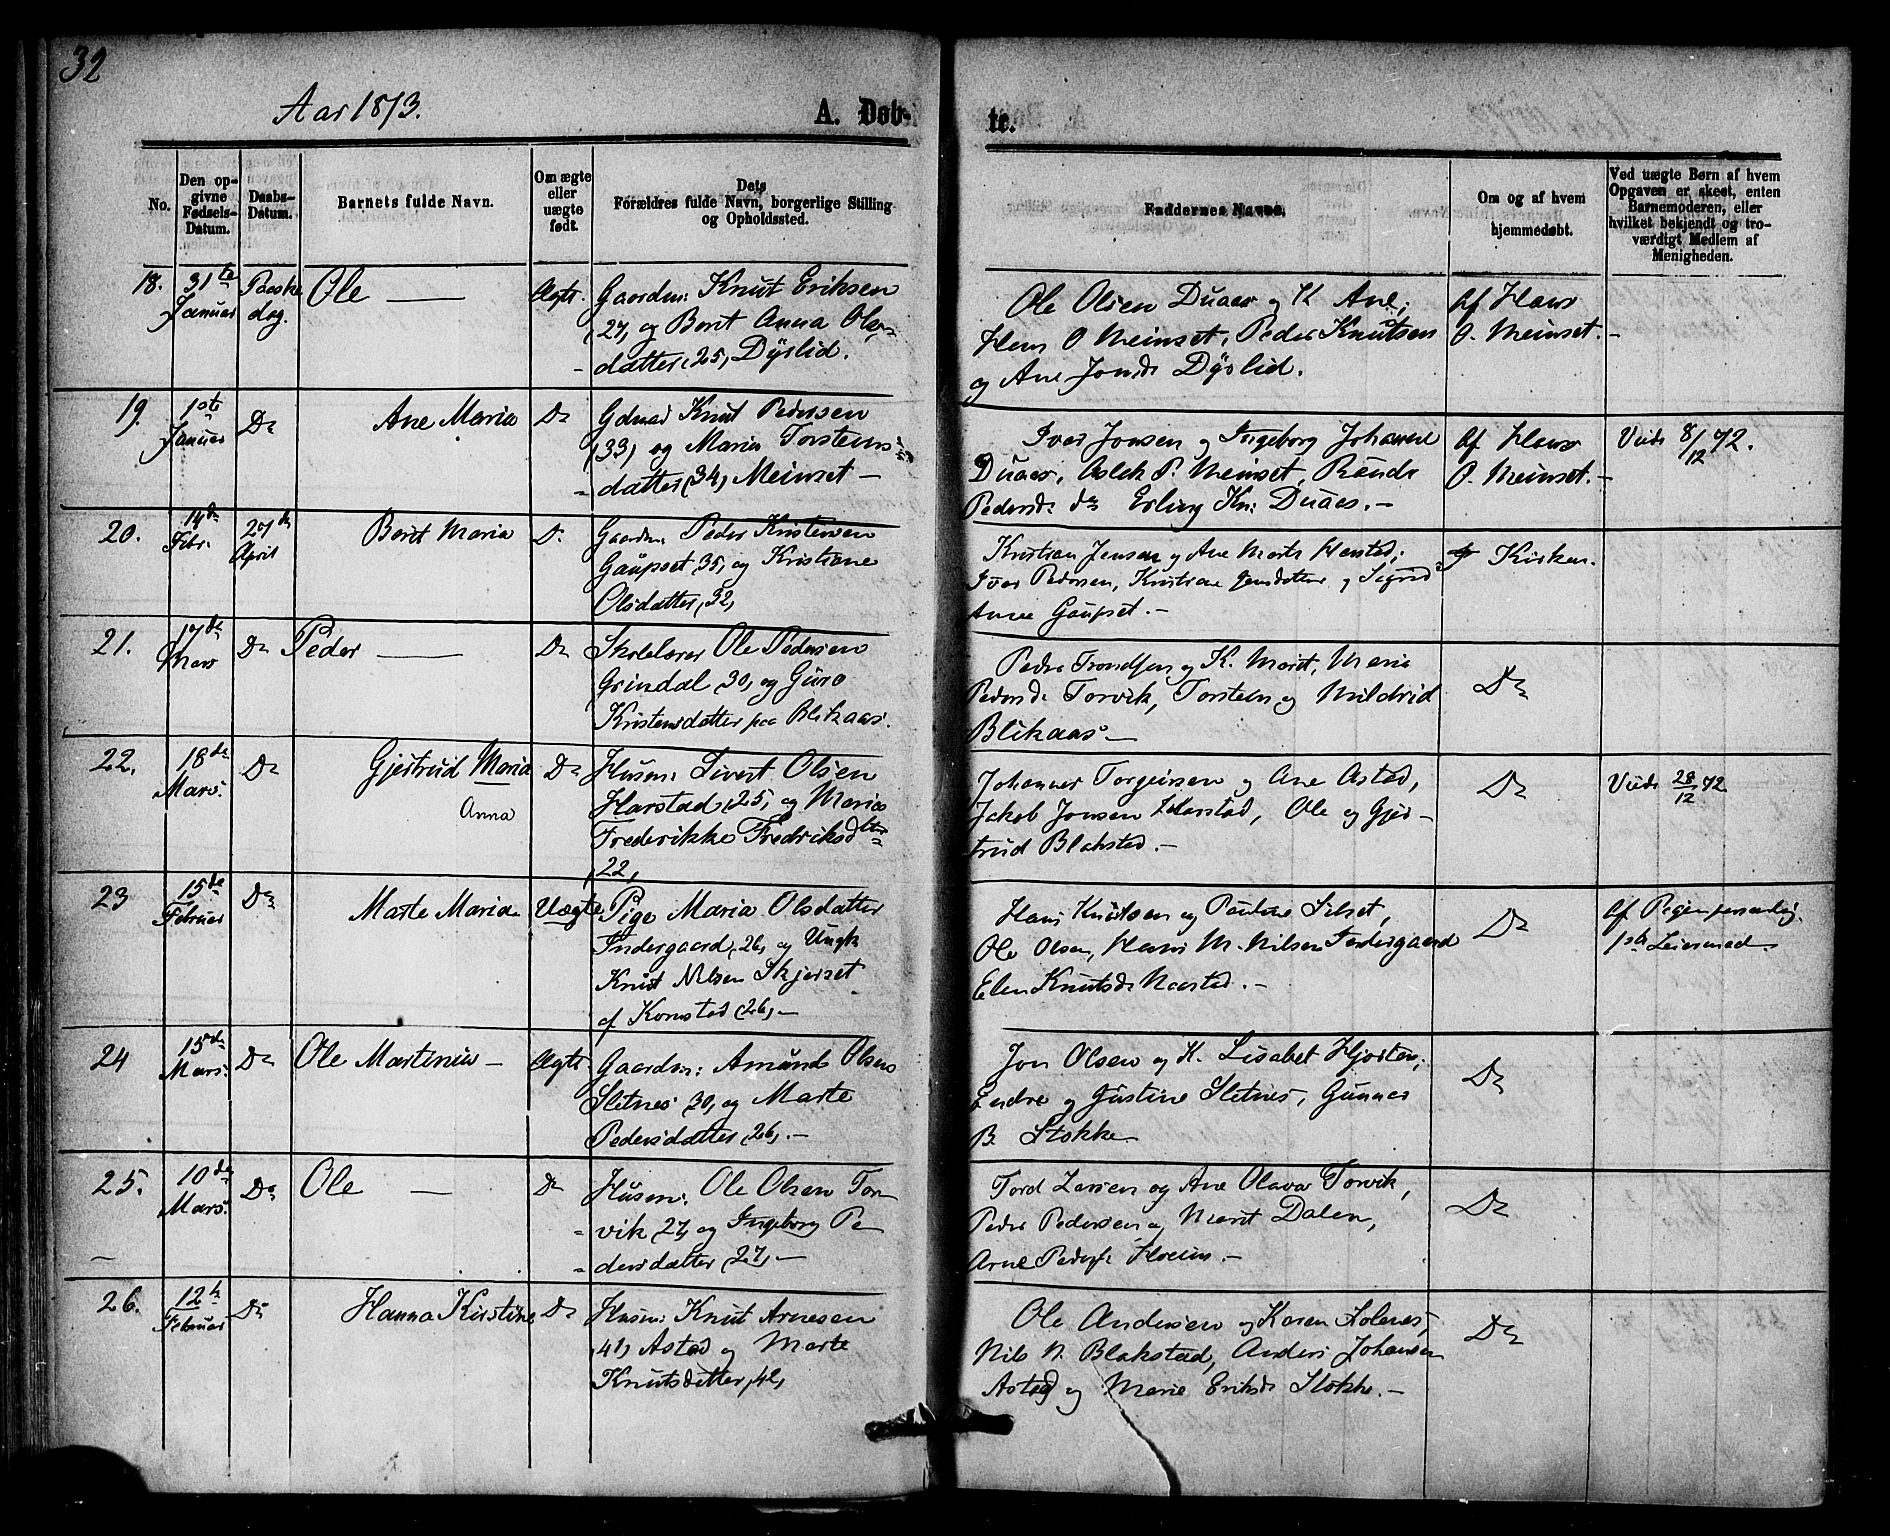 32
Aar 1873.
A. Døb-
te.
No.
Den op-
givne
Fødsels-
Datum.
Daabs-
Datum.
Barnets fulde Navn.
Om ægte
eller
uægte
født.
Dets
Forældres fulde Navn, borgerlige Stilling
og Opholdssted.
Faddernes Navne.
Om og af hvem
hjemmedøbt.
Ved uægte Børn af hvem
Opgaven er skeet, enten
Barnemoderen, eller
hvilket bekjendt og tro-
værdigt Medlem af
Menigheden.
18.
31te
Januar
Paaske
dag.
Ole
Ægte.
Gaardm: Knut Eriksen
27, og Borit Anna Ols-
datter, 25, Dyslid.
Ole Olsen Duaas og K. Ane,
Hans O Meinset, Peder Knutsen
og Ane Jonsd. Dyslid.
Af Hans
O. Meinset.
19.
1ste
Januar
Do
Ane Maria
Do
Gdmad Knut Pedersen
(33) og Maria Torstens-
datter (34, Meinset
Iver Jonsen og Ingeborg Johanne
Duaas, Aslek P. Meinset, Rønnd
Pedersd. do Erling Kn: Duaas.
Af Hans
O. Meinset.
Viede 8/12 72.
20.
14de
Febr.
27de
April
Borit Maria
Do
Gaardm: Peder Kristensen
Gaupset 35, og Kristiane
Olsdatter, 32,
Kristian Jensen og Ane Marta Harstad,
Iver Pedersen, Kristiane Jensdatter og Sigrid
Anne Gaupset.
I Kirken.
21.
17de
Mars
Do
Peder
Do
Skolelærer Ole Pedersen
Grindal 30, og Guro
Kristensdatter paa Blikaas.
Peder Trondsen og K. Marit, Maria
Pedersd. Torvik, Torsten og Mildrid
Blikaas
Do
22.
18de
Mars.
Do
Gjertrud Maria
Anna
Do
Husm: Sivert Olsen
Harstad, 25, og Maria
Frederikke Fredriksdtter
22,
Johannes Torgeirsen og Ane Astad,
Jakob Jonsen Harstad, Ole og Gjer-
trud Blakstad.
Do
Viede 28/12 72
23
15de
Februar
Do
Marte Maria
Uægte
Pige Maria Olsdatter
Indergaard, 26, og Ungk
Knut Nilsen Skjerset
af Kornstad (26,
Hans Knutsen og Pauline Silset,
Ole Olsen, Hans M. Nilsen Indergaard
Elen Knutsd. Naastad.
Do
Af Pigen personlig.
1ste Leiermaal
24
15de
Mars.
Do
Ole Martinus
Ægte.
Gaardm: Amund Olsen
Sletnes 30, og Marte
Pedersdatter, 26,
Jon Olsen og K. Lisabet Hjorten,
Endre og Gustine Sletnes, Gunnar
B. Stokke
Do
25.
10de
Mars.
Do
Ole
Do
Husm: Ole Olsen Tor-
vik 27, og Ingeborg Pe-
dersdatter, 27,
Tord Larsen og Ane Olava Torvik,
Peder Pedersen og Marit Dalen,
Arne Peders. Hoem
Do
26.
12te
Februar
Do
Hanna Kirstine
Do
Husm: Knut Arnesen
41, Astad og Marte
Knutsdatter, 42,
Ole Andersen og Karen Solenes,
Nils N. Blakstad, Anders Johansen
Astad og Marie Eriksd. Stokke.
Do